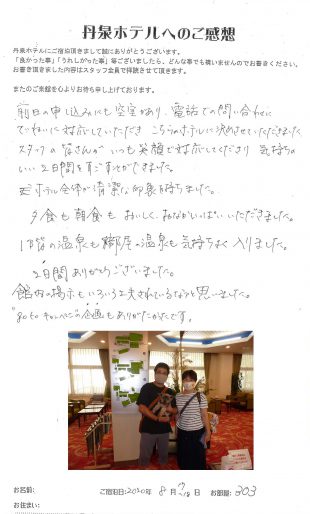 丹泉ホテルへのご感想
丹泉ホテルにご宿泊頂きまして誠にありがとうございます。
「良かった事」「うれしかった事」等ございましたら、どんな事でも構いませんのでお書きください。
お書き頂きました内容はスタッフ全員で拝読させて頂きます。
またのご来館を心よりお待ち申し上げております。
前日の申し込みにも空室があり、電話での問い合わせに
ていねいに対応していただき こちらのホテルに決めさせていただきました
スタッフの皆さんが いつも笑顔で対応してくださり 気持ちの
いい2日間をすごすことができました。
ホテル全体が清潔な印象を持ちました。
夕食も朝食も おいしく、おなかいっぱいいただきました。
1階の温泉も部屋の温泉も気持ちよく入りました。
2日間ありがとうございました。
館内の掲示もいろいろ工夫されているなぁと思いました。
"go to キャンペーン"の企画もありがたかったです。
お名前:
ご宿泊日:2020年 8月 日 お部屋: 303
お住まい: